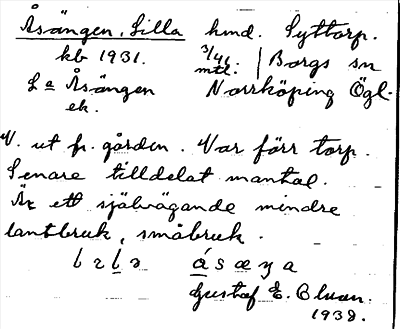 Åsängen, Lilla hmd. Lyttorp.
kb 1931. 3/46 mtl. Borgs sn
La Åsängen Norrköping Ögl.
ek.
V. ut fr. gården. Var förr torp.
Senare tilldelat mantal.
Är ett självägande mindre
lantbruk, småbruk.
Gustaf E. Bluan.
1938.